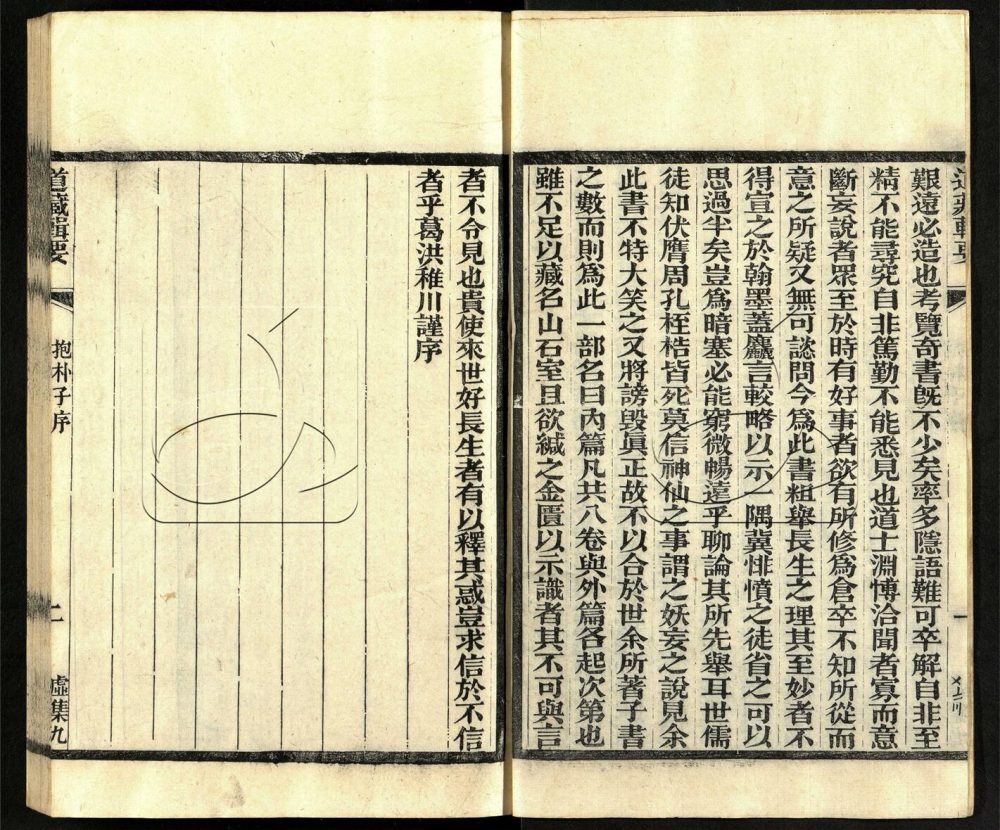 艱遠必造也考覽奇書旣不少矣率多隱語難可卒解自非至
精不能尋究自非篤勤不能悉見也道士淵博洽聞者寡而意
斷妄說者眾至於時有好事者欲有所修爲倉卒不知所從而
意之所疑又無可諮問今爲此書粗舉長生之理其至妙者不
得宣之於翰墨蓋麤言較略以示一隅冀悱憤之徒省之可以
思過半矣豈爲暗塞必能窮微暢遠乎聊論其所先舉耳世儒
徒知伏膺周孔桎梏皆死莫信神仙之事謂之妖妄之說見余
此書不特大笑之又將謗毀眞正故不以合於世余所著子書
之數而則爲此一部名曰內篇凡共八卷與外篇各起次第也
雖不足以藏名山石室且欲緘之金匱以示識者其不可與言
者不令見也貴使來世好長生者有以釋其惑豈求信於不信
者乎葛洪稚川謹序
道藏輯要
抱朴子序
二
虛集九